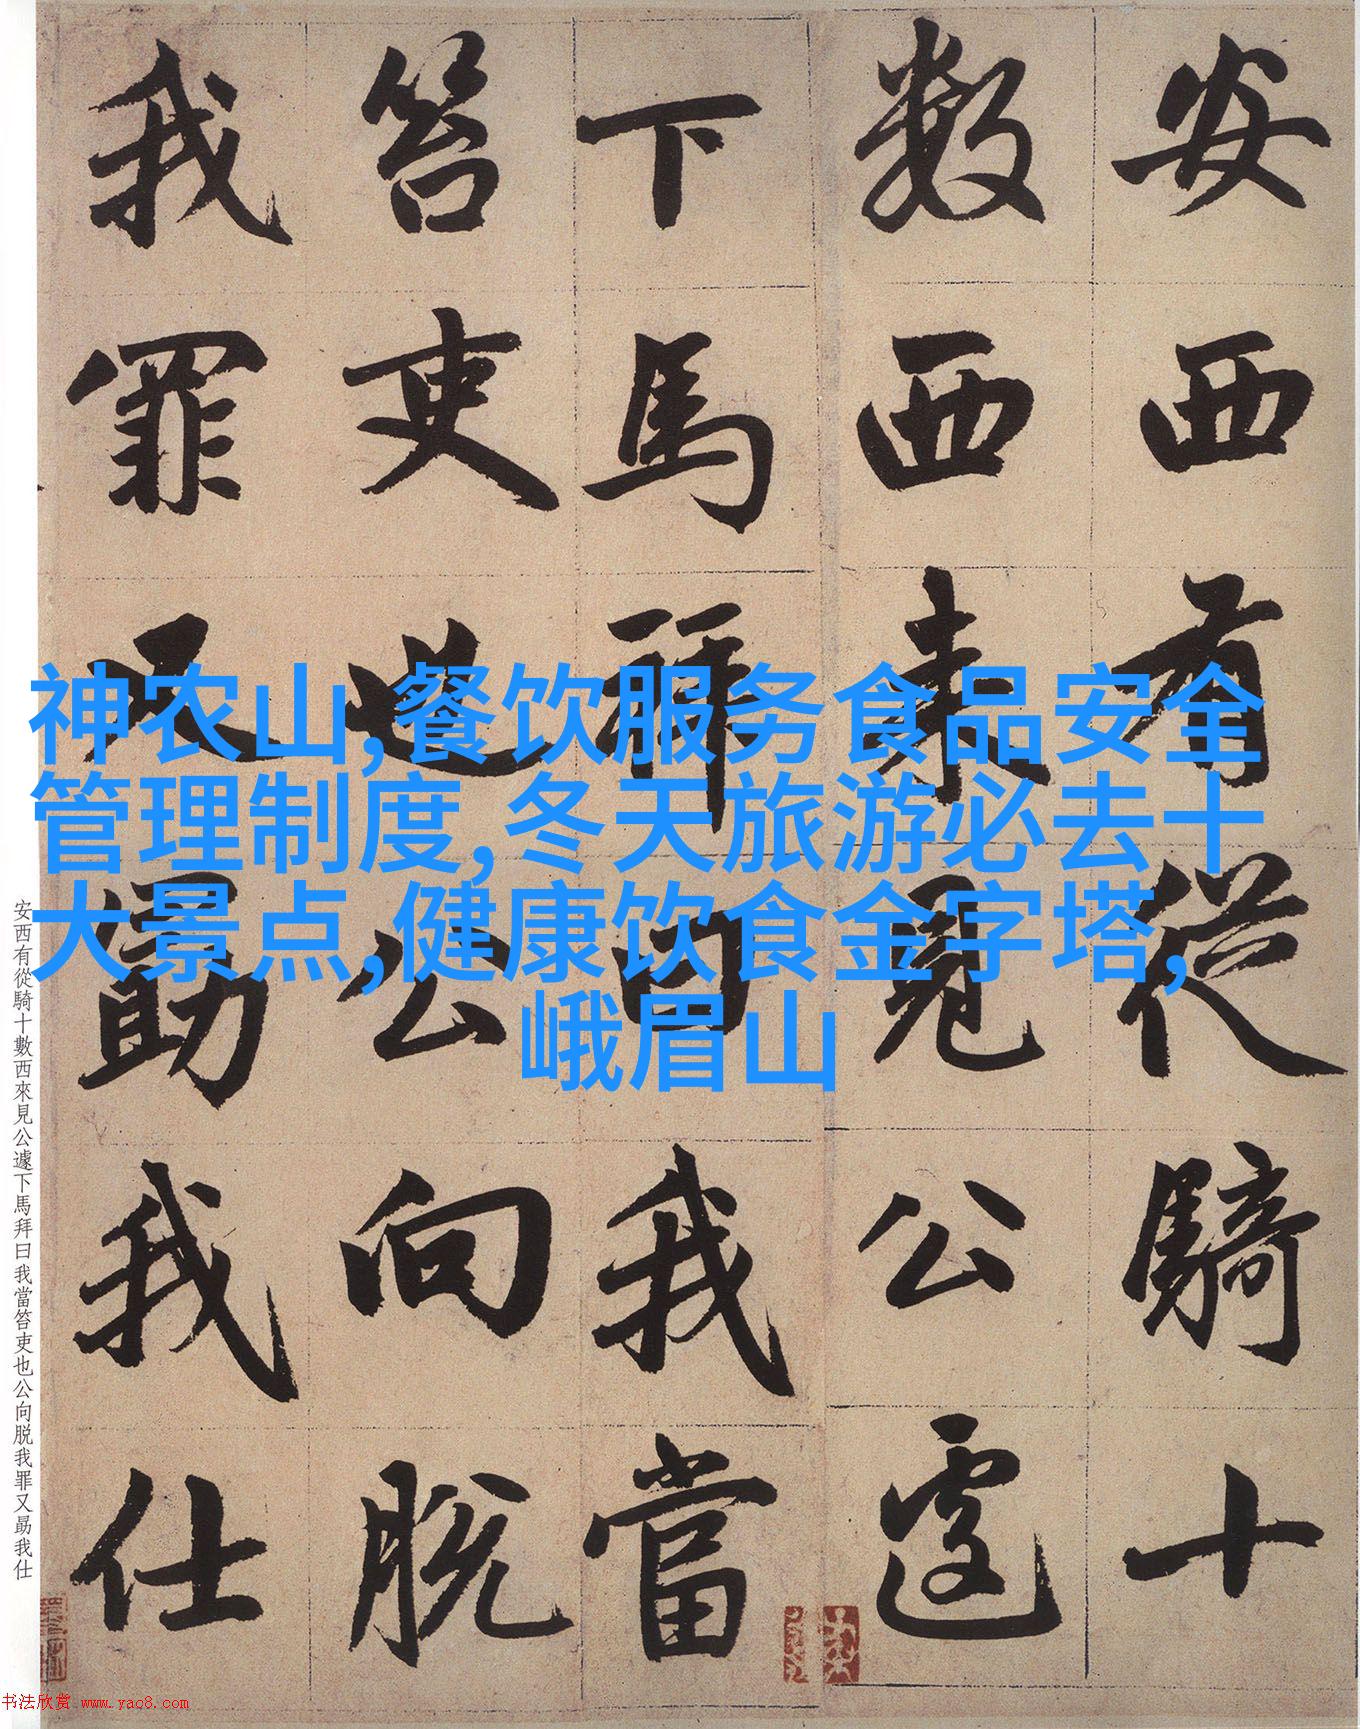 安西有從騎十
數西來見公遽
下馬拜曰我當
笞吏迯公向脱
我罪又勗我仕
神农山,餐饮服务食品安全
管理制度,冬天旅游必去十
大景点,健康饮食金字塔,
峨眉山
安西有從騎十數西來見公遽下馬拜曰我當笞吏也公向脱我罪又勗我仕
书法欣赏 www.yac8.com